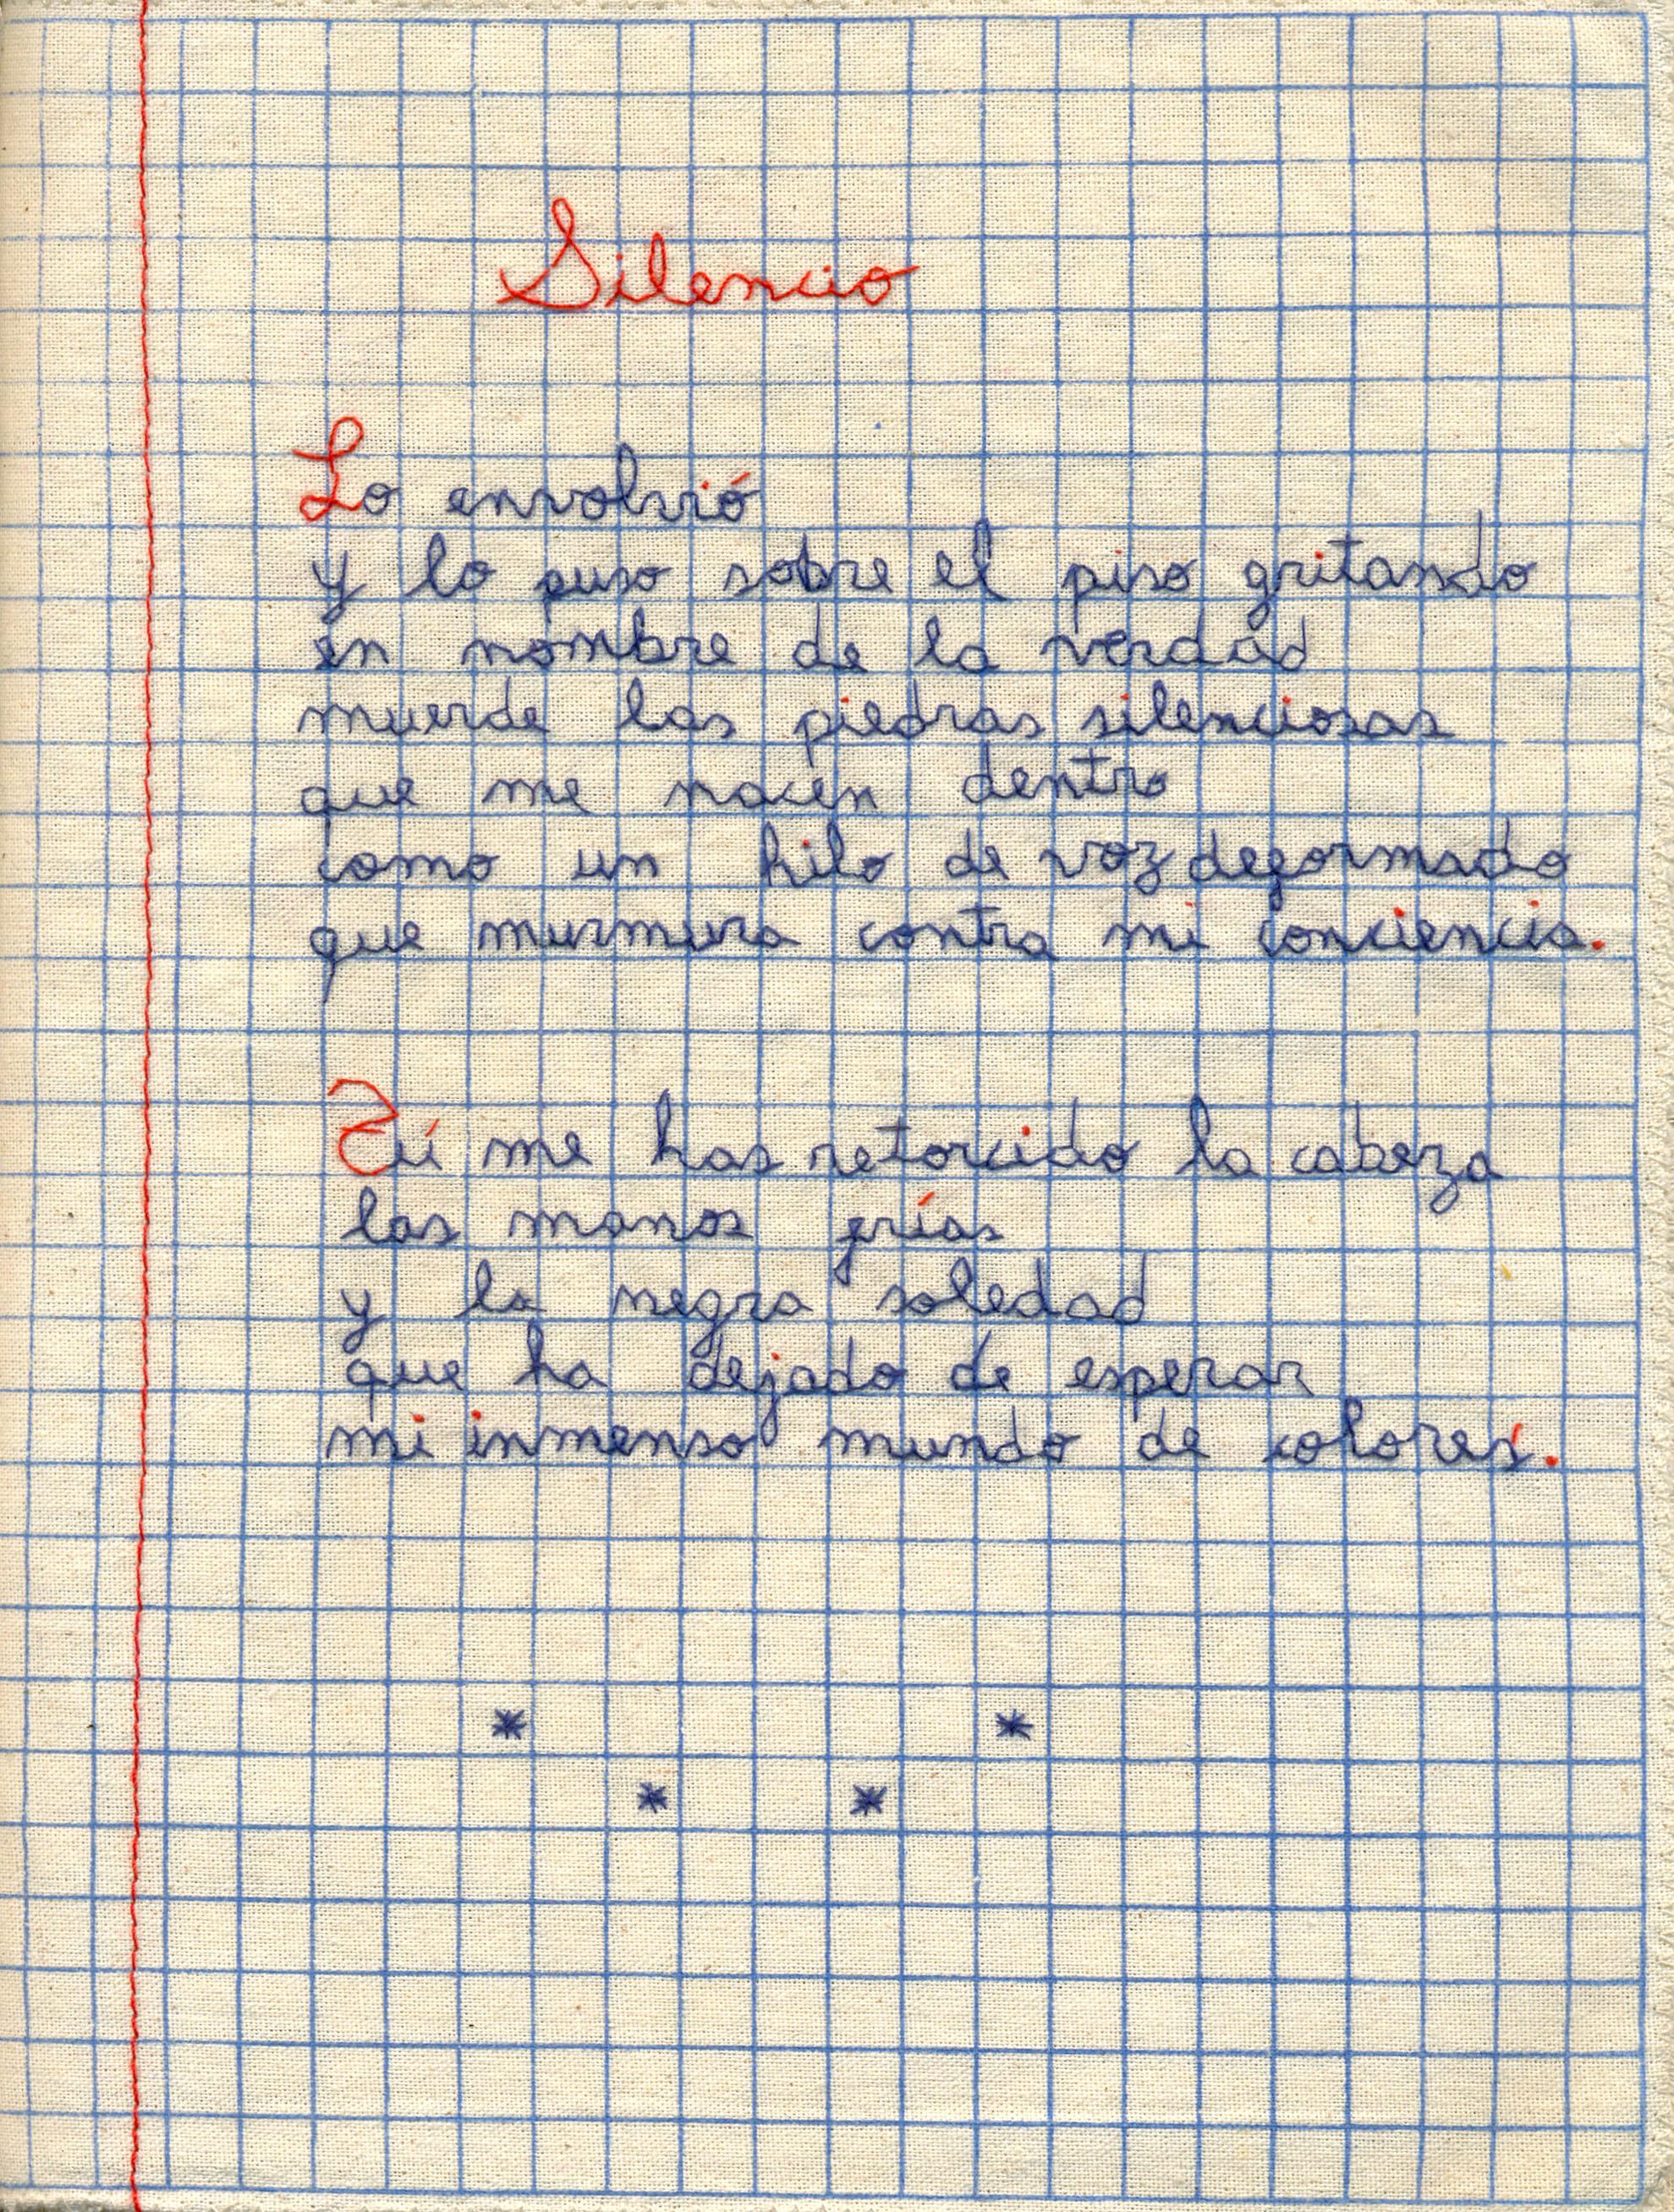 Silencio
Lo envolvió
y lo puso sobre el piso gritando
en nombre de la verdad
muerde las piedras silenciosas
que me nacen dentro
como un hilo de voz deformado
que murmura contra mi conciencia.
Tú me has retorcido la cabeza
las manos frías
y la negra soledad
que ha dejado de esperar
mi inmenso mundo de colores.
* *
* *